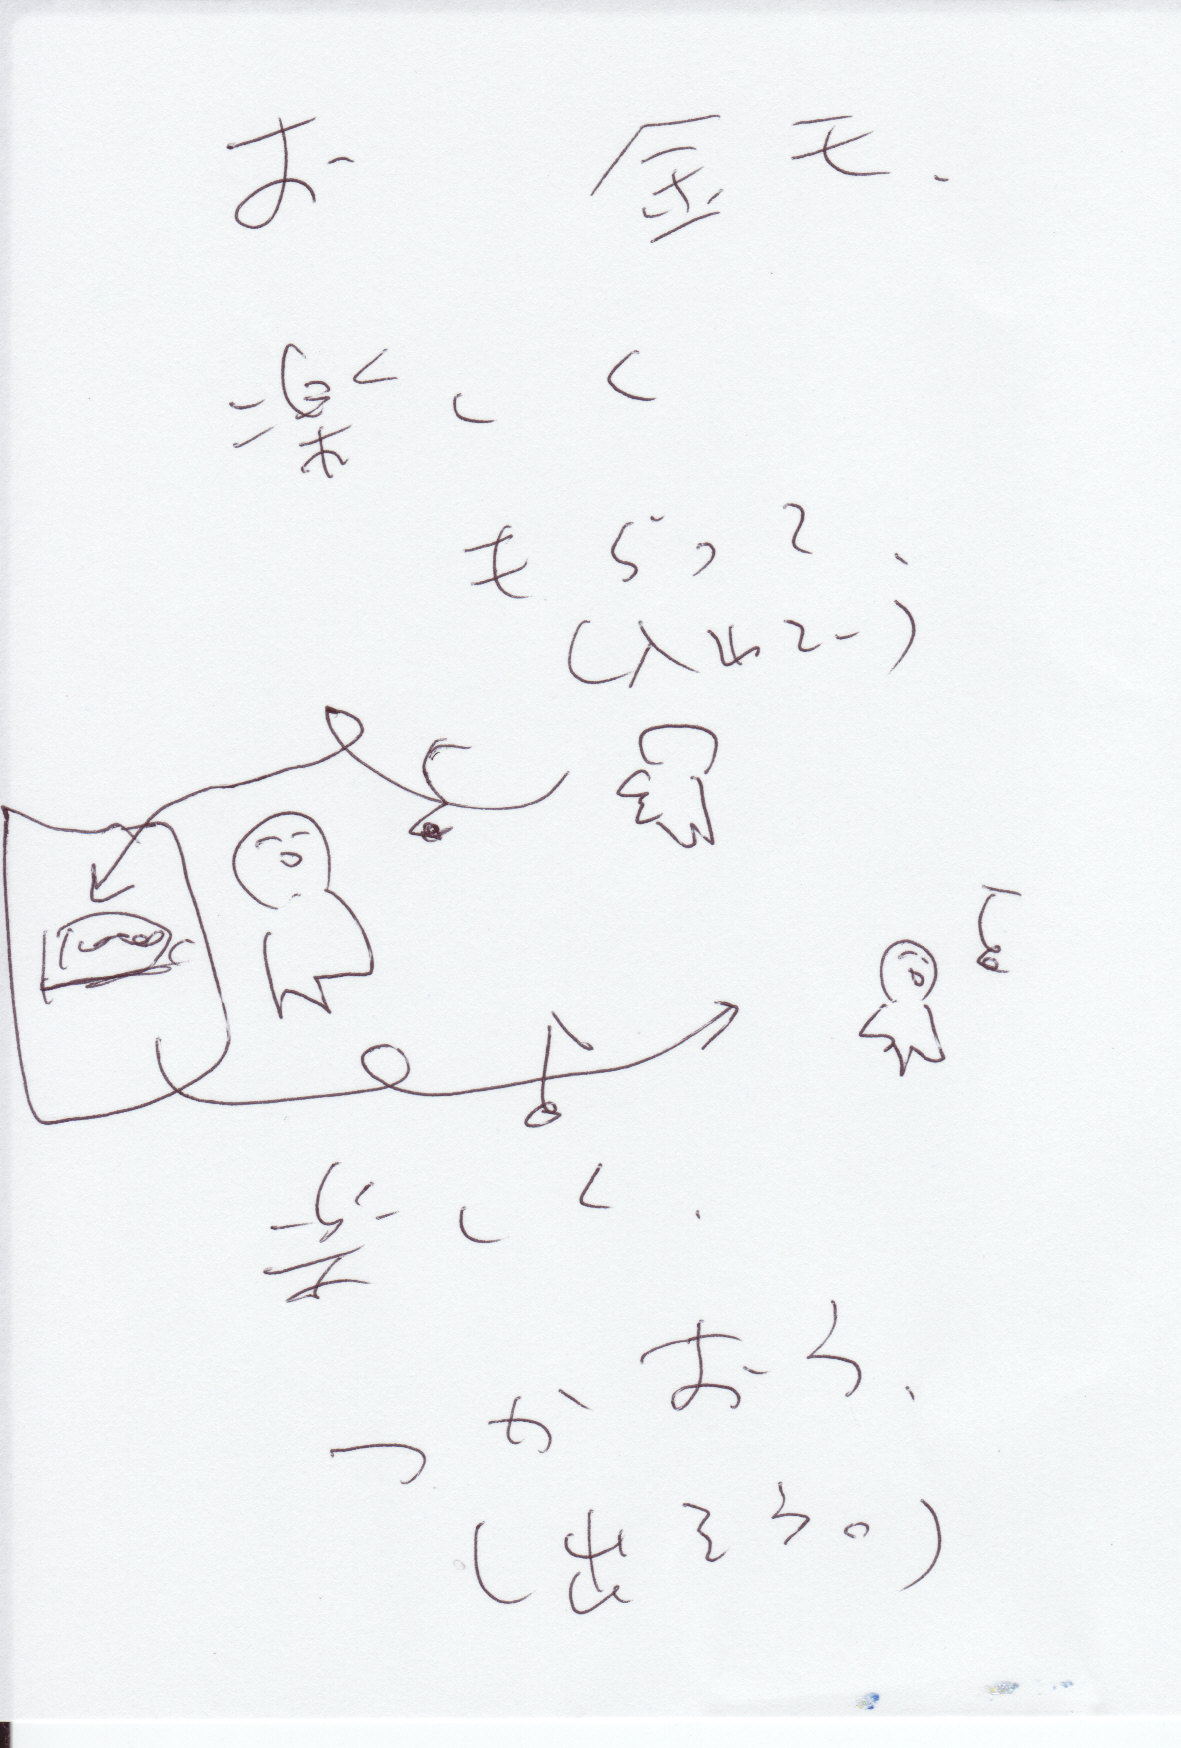 お金も、
楽しく
もらって、
(入れてー)
楽しく、
つかおう、
(出そう。)